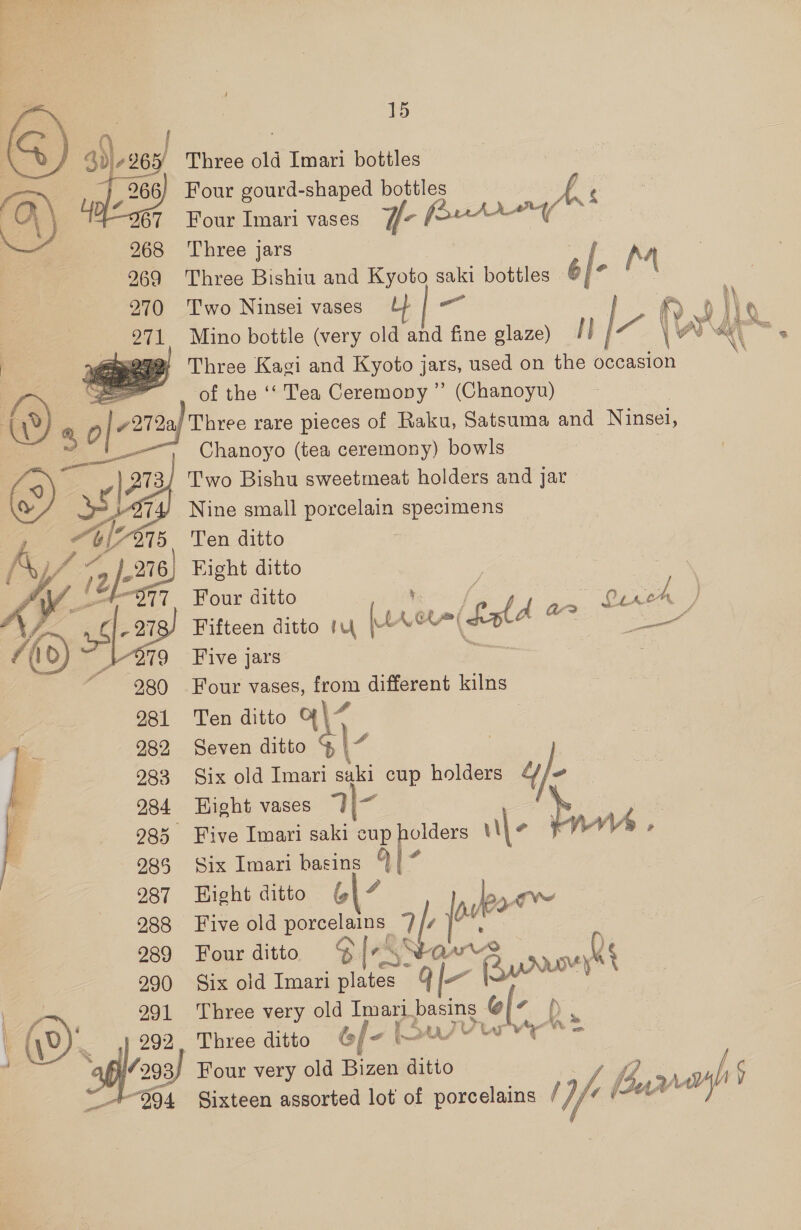 15
30/- 265 Three old Imari bottles
266 Four gourd-shaped bottles
40/- 267 Four Imari vases 7/- Burroughs
268 Three jars
269 Three Bishiu and Kyoto saki bottles 6/- M
270 Two Ninsei vases 4/-
271 Mino bottle (very old and fine glaze) 11/-
272 Three Kagi and Kyoto jars, used on the occasion
of the “ Tea Ceremony ” (Chanoyu)
272a Three rare pieces of Raku, Satsuma and Ninsei,
Chanoyo (tea ceremony) bowls
273 Two Bishu sweetmeat holders and jar
35/- 274 Nine small porcelain specimens
6/- 275 Ten ditto
276 Eight ditto
12/- 277 Four ditto
278 Fifteen ditto 14 were (Sold as Such)
(10) 279 Five jars
280 Four vases, from different kilns
281 Ten ditto 9/-
282 Seven ditto
283 Six old Imari saki cup holders 4/-
284 Eight vases 7/-
285 Five Imari saki cup holders 11/-
286 Six Imari basins 9/-
287 Eight ditto 6/-
288 Five old porcelains 7/-
289 Four ditto 8/-
290 Six old Imari plates 9/- Burroughs
291 Three very old Imari basins 6/-
(10) 292 Three ditto 6/- Burroughs
293 Four very old Bizen ditto
294 Sixteen assorted lot of porcelains 17/- Burroughs